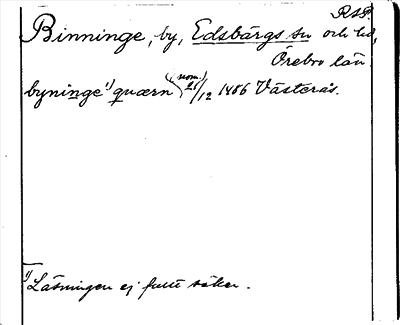 RAP.
Binninge, by, Edsbärgs sn och hd,
Örebro län.
byninge¹⁾ quærn (nom.) 21/12 1486 Västerås.
1) Läsningen ej fullt säker.